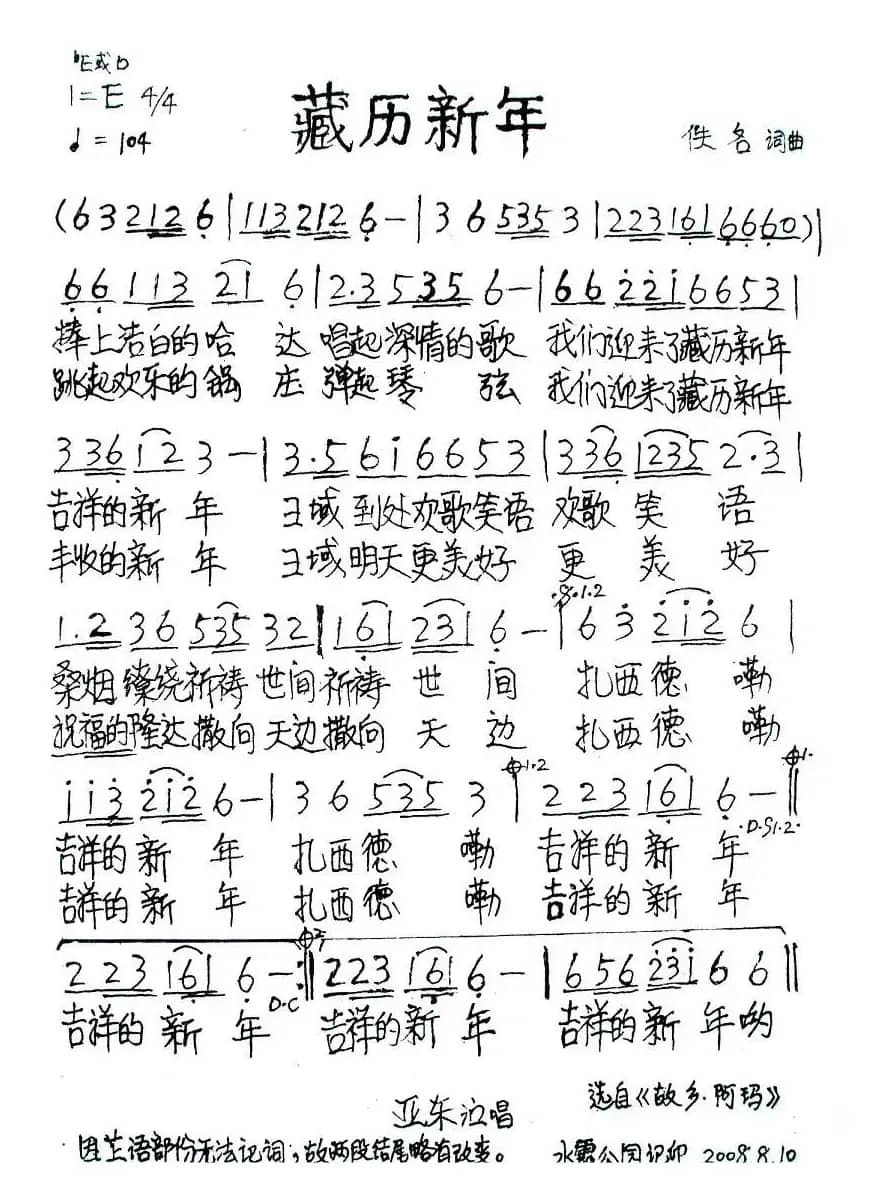 ♭E或D
1=E 4/4
♩=104
藏历新年
佚名 词曲
(6 3 212 6|113 212 6-|3 6 535 3|223 161 6660)|
66 113 21 6|2.3 5 35 6-|66 221 6653|
捧上洁白的哈 达 唱起深情的歌 我们迎来了藏历新年
跳起欢乐的锅 庄 弹起琴 弦 我们迎来了藏历新年
336 12 3-|3.5 61 6653|336 1235 2.3|
吉祥的新 年 王域到处欢歌笑语 欢歌 笑 语
丰收的新 年 王域明天更美好 更 美 好
1.2 36 535 32|161 231 6-|6 3 212 6|
桑烟缭绕祈祷世间祈祷 世 间 扎西德 嘞
祝福的隆达撒向天边撒向 天 边 扎西德 嘞
113 212 6-|3 6 535 3|223 161 6-‖
D.S1.2
吉祥的新 年 扎西德 嘞 吉祥的新 年
吉祥的新 年 扎西德 嘞 吉祥的新 年
223 161 6-:‖223 161 6-|656 231 6 6‖
D.C
吉祥的新 年 吉祥的新 年 吉祥的新 年哟
亚东 演唱
选自《故乡·阿玛》
因 语部份无法记词,故两段结尾略有改变。
永 公园记 2008.8.10